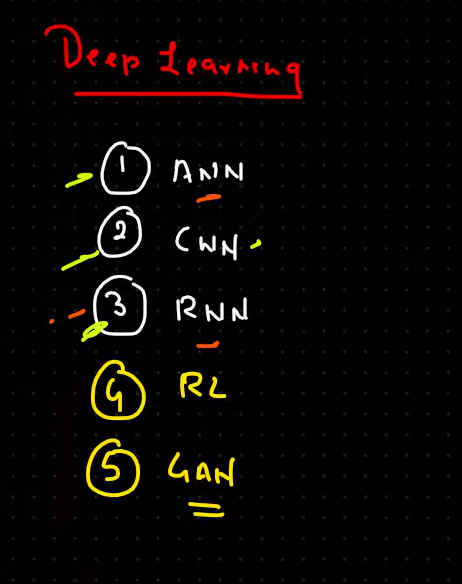 Deep Learning
1 ANN
2 CNN
3 RNN
4 RL
5 GAN